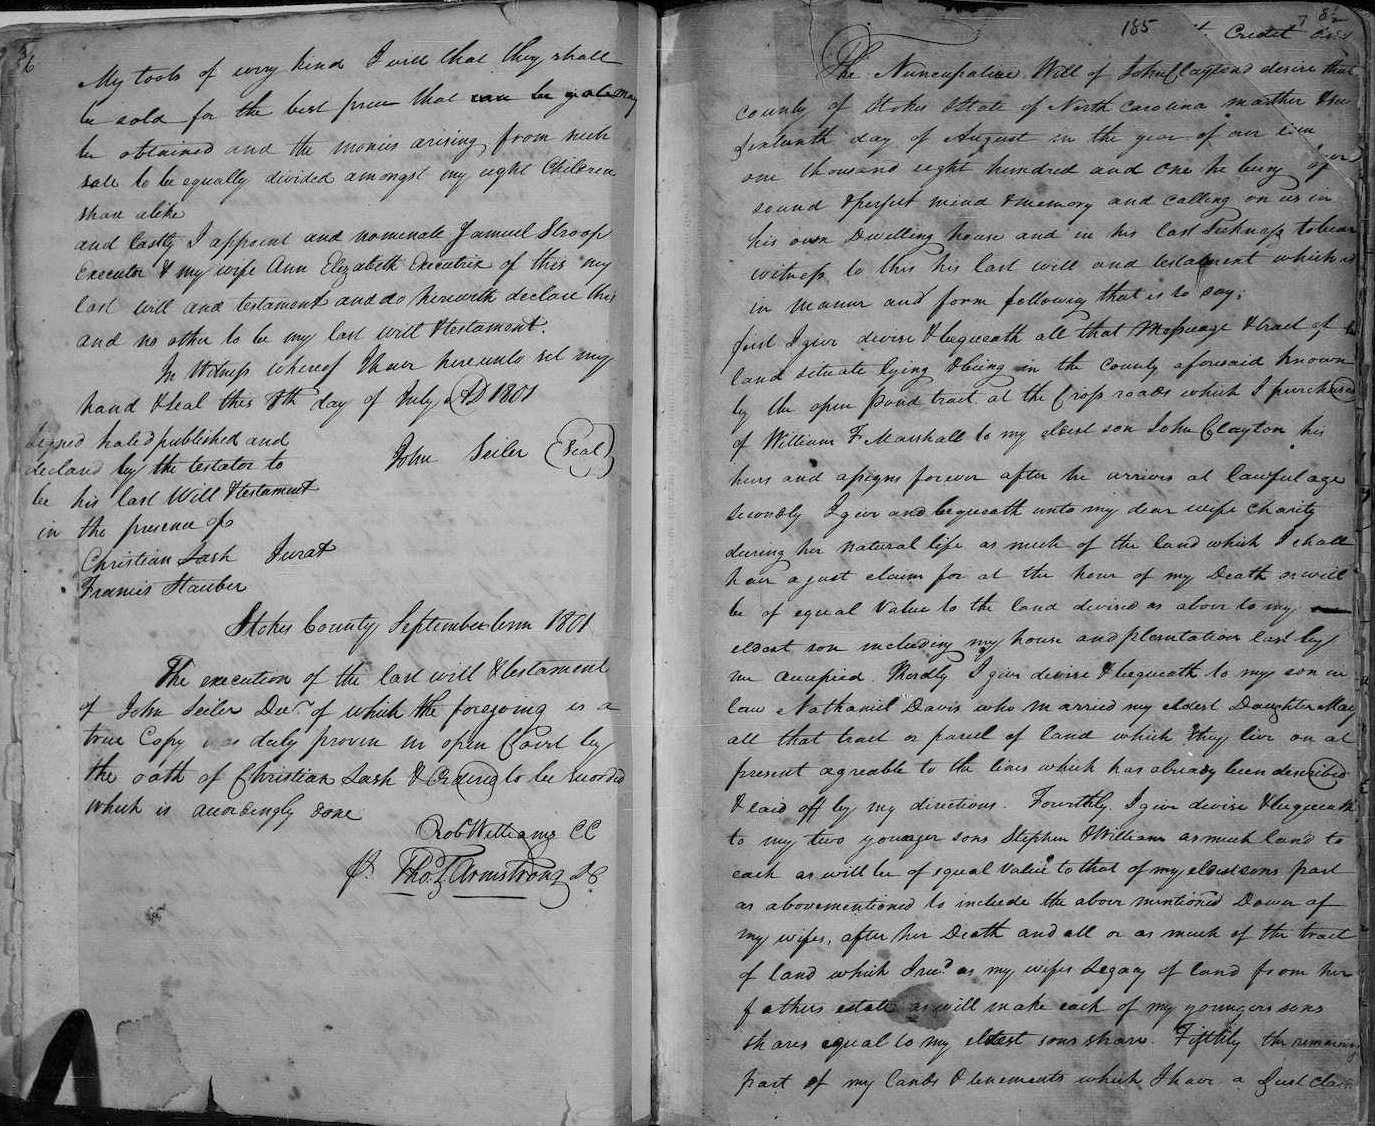 My tools of every kind I will that they shall
be sold for the best price that can be got may
be obtained and the monies arising from such
sale to be equally divided amongst my eight Children
share alike
and lastly I appoint and nominate Samuel Stroop
Executor & my wife Ann Elizabeth Executrix of this my
last will and testament and do herewith declare this
and no other to be my last will & testament.
In Witness whereof I have hereunto set my
hand & seal this 8th day of July AD 1801
Signed Saled published and
declard by the testator to
be his last Will & testament
in the presence of
John Seiler (Seal)
Christian Lash Jurat
Francis Stauber
Stokes County September term 1801
The execution of the last will & testament
of John Seiler Decd. of which the foregoing is a
true Copy was duly proven in open Court by
the oath of Christian Lash & Ordered to be recorded
which is accordingly done
Rob Williams CC
P. Thos. T. Armstrong DC
185
8½
Credit
The Nuncupative Will of John Clayton desire that
county of Stokes & State of North Carolina
Sixteenth day of August in the year of our
one thousand eight hundred and one he being of
sound & perfect mind & memory and calling on us in
his own Dwelling house and in his last Sickness to bear
witness to this his last will and testament which is
in manner and form following that is to say;
first I give devise & bequeath all that Messuage & tract of
land situate lying & being in the County aforesaid known
by the open pond tract at the Cross roads which I purchased
of William F Marshall to my eldest son John Clayton his
heirs and assigns forever after he arrives at lawful age
secondly I give and bequeath unto my dear wife Charity
during her natural life as much of the land which I shall
have a just claim for at the hour of my Death as will
be of equal Value to the land devised as above to my
eldest son including my house and plantation last by
me occupied. Thirdly I give devise & bequeath to my son in
law Nathaniel Davis who married my eldest Daughter Mary
all that tract or parcel of land which they live on at
present agreable to the lines which has already been described
& laid off by my directions. Fourthly. I give devise & bequeath
to my two younger sons Stephen & William as much land to
each as will be of equal Value to that of my eldest sons part
as abovementioned to include the above mentioned Dower of
my wifes, after her Death and all or as much of the tract
of land which I recd as my wifes Legacy of land from her
fathers estate as will make each of my youngers sons
shares equal to my eldest sons share. Fifthly the remaining
part of my Lands & tenements which I have a Just claim